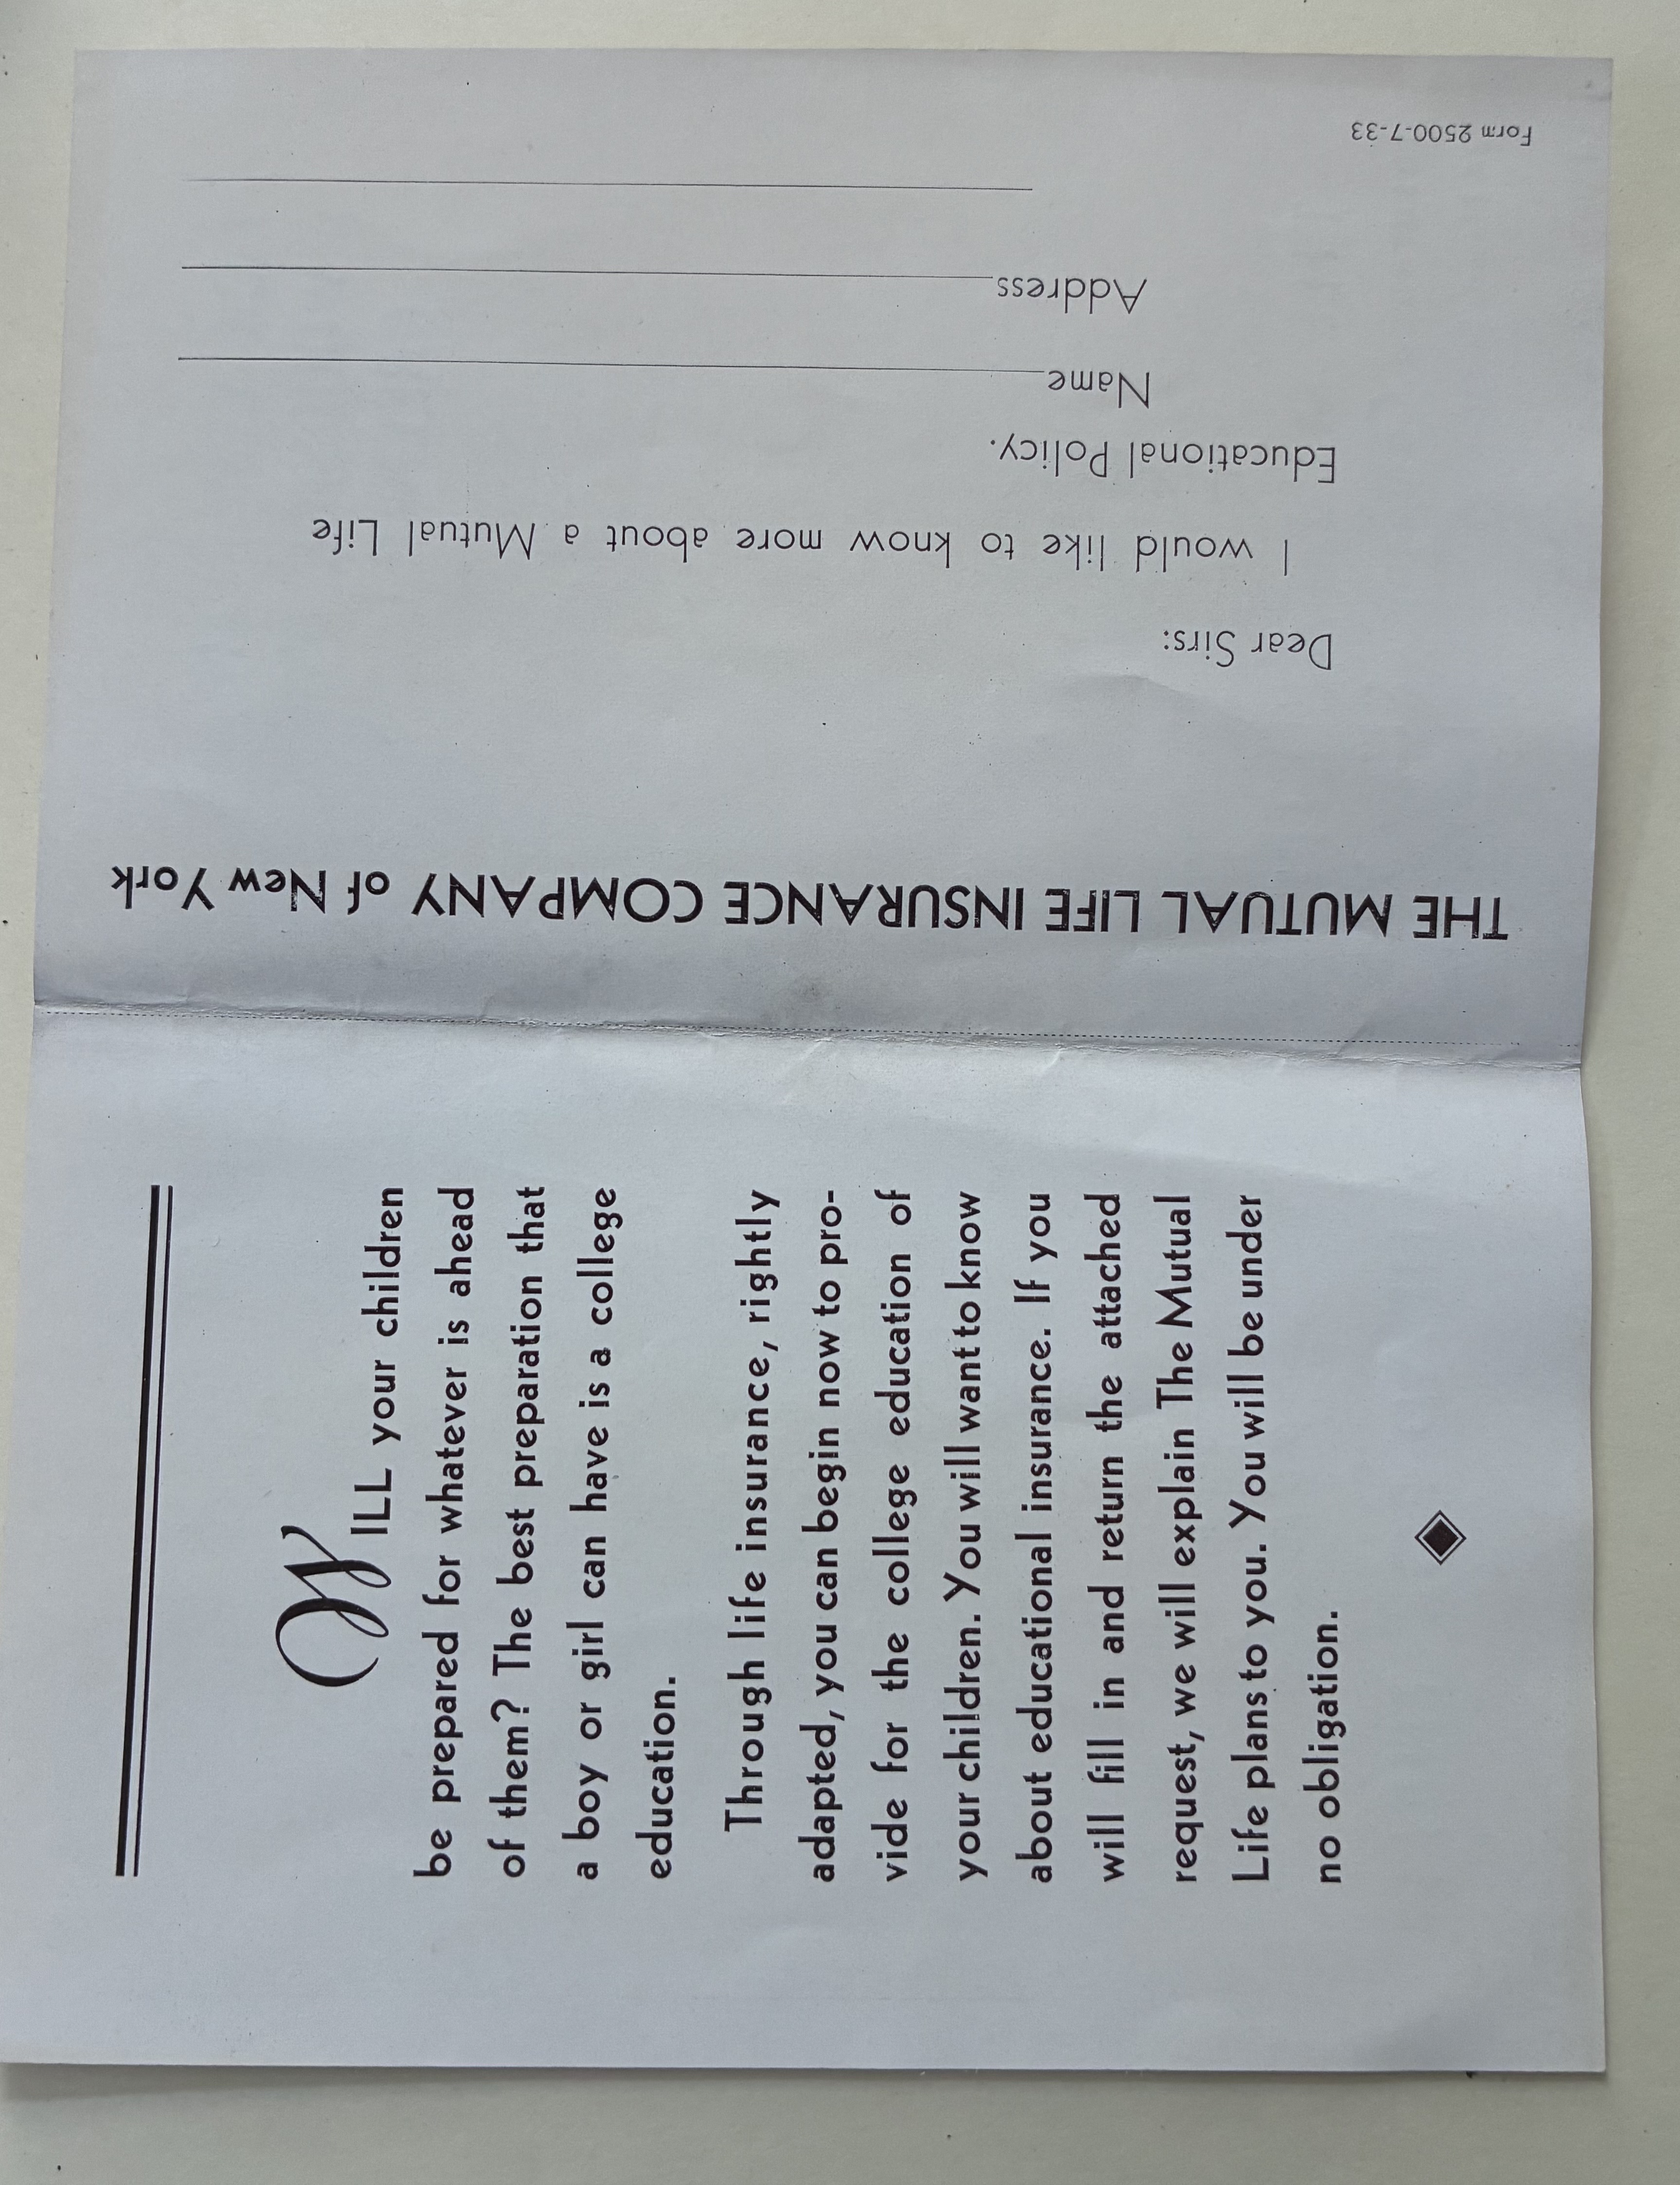 WILL your children
be prepared for whatever is ahead
of them? The best preparation that
a boy or girl can have is a college
education.
Through life insurance, rightly
adapted, you can begin now to pro-
vide for the college education of
your children. You will want to know
about educational insurance. If you
will fill in and return the attached
request, we will explain The Mutual
Life plans to you. You will be under
no obligation.
THE MUTUAL LIFE INSURANCE COMPANY of New York
Dear Sirs:
I would like to know more about a Mutual Life
Educational Policy.
Name
Address
Form 2500-7-33